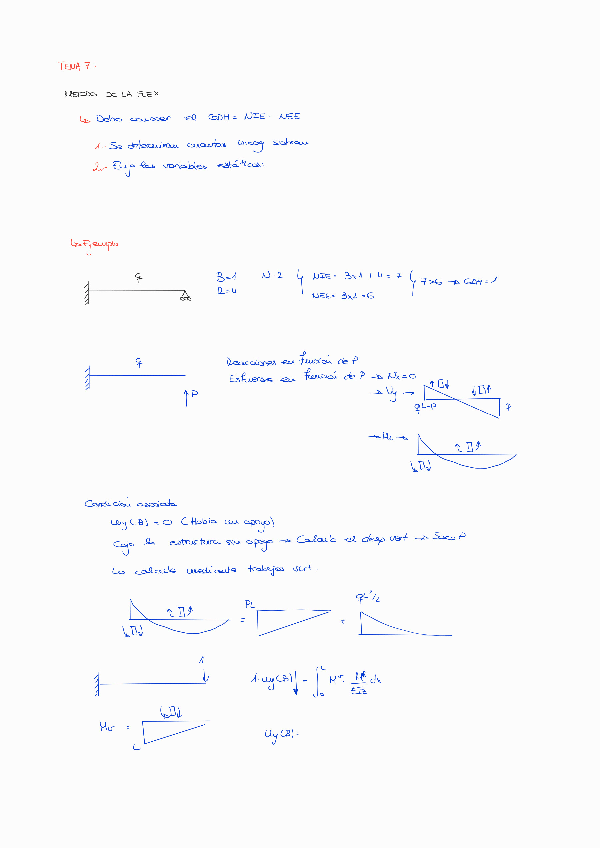 TEMA 7.
METODO DE LA FLEX
↳ Debo conocer el GDH = NIE - NEE
1- Se determina cuantas incog sobran
2- Elijo las variables estáticas
↳ Ejemplo
q
B=1 N=2 NIE= 3x1+4=7 7>6 → GDH=1
R=4 NEE= 3x2=6
q
P
Reacciones en función de P
Esfuerzos en función de P → Nx=0
→ Vy →
qL-P P
→ Mz →
Condición asociada
Uy(B) = 0 (Había un apoyo)
Cojo la estructura sin apoyo → Calculo el desp vert → Saco P
Lo calculo mediante trabajos virt
= PL = qL²/2
1
1·Uy(B)↓ = ∫ L 0 Mv · Mf/EIz dx
Mv =
L
Uy(B)=